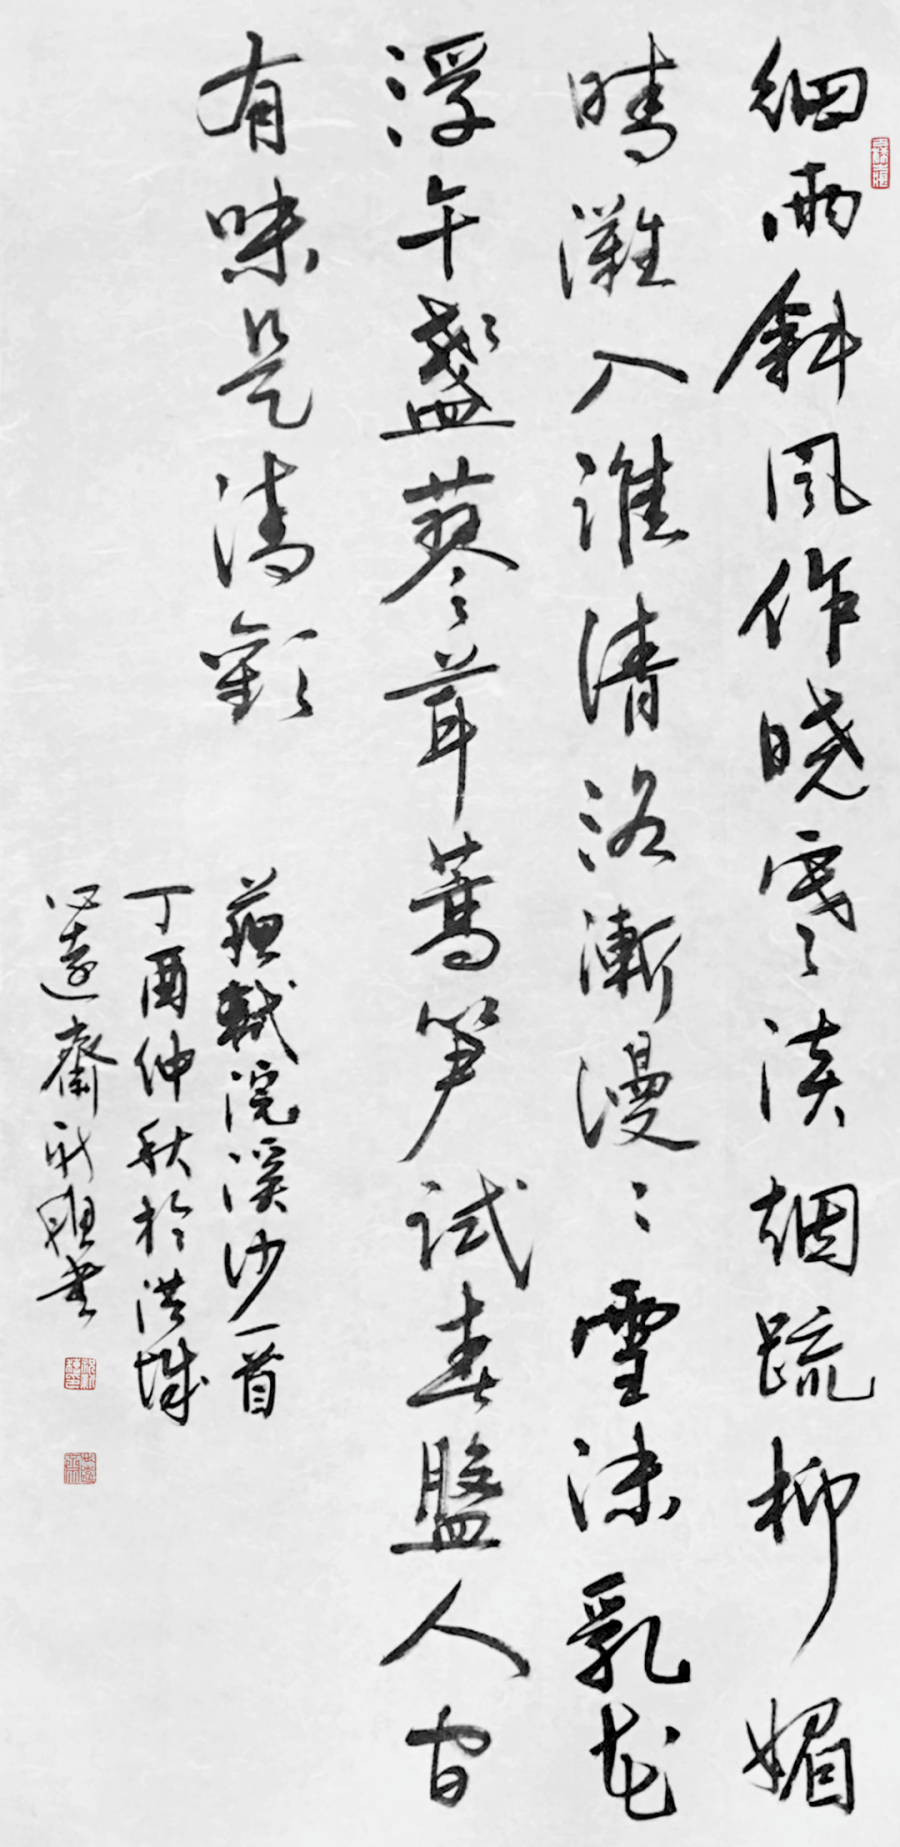 细雨斜风作晓寒淡烟疏柳媚
晴滩入淮清洛渐漫漫雪沫乳花
浮午盏蓼茸蒿笋试春盘人间
有味是清欢
苏轼浣溪沙一首
丁酉仲秋于洪城
心远斋